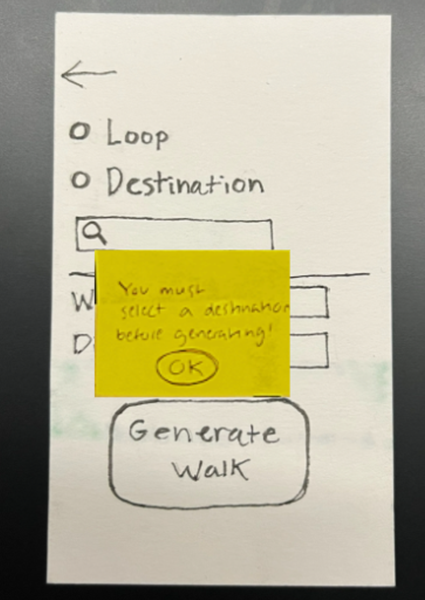 Loop
Destination
You must
select a destination
before generating!
W
D
OK
Generate
Walk